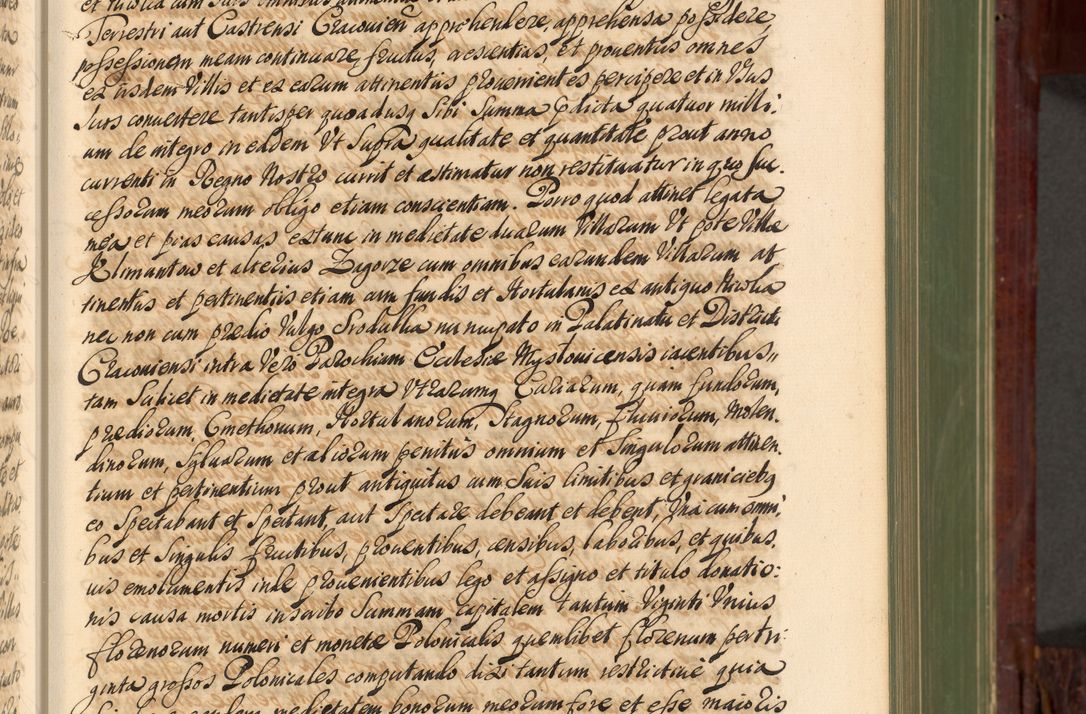 Terrestri aut Castrensi Cracouien̄ apprehendere, apprehensa possidere
possessionem meam continuare, fructus, crescentias, et prouentus omnes
ex iisdem Villis et ex earum attinentiis prouenientes percipere et in Vsus
Suos conuertere tantisper quoadusq Sibi Summa pdicta quatuor milli:
um de integro in eadem Vt Supra qualitate et quantitate prout anno
currenti in Regno Nostro currit et æstimatur non restituatur in quo suc.
cessorum meorum obligo etiam conscientiam. Porro quod attinet legata
mea et pias causas ex tunc in medietate duarum Villarum Vt pote Villæ
Klimantow et alterius Zagorze cum omnibus earundem Villarum at
tinentiis et pertinentiis etiam cum fundis et Hortulanis ex antiquo
nec non cum prædio Vulgo Srodulka nuncupato in Palatinatu et Districtu
Cracouiensi intra Vero Parochiam Ecclesiæ Myslouicensis iacentibus,,
tam Scilicet in medietate integra Vtrarumq Curiarum, quam fundorum,
prædiorum, Cmethonum, Hortulanorum, Stagnorum, fluuiorum, Molen.
dinorum, Syluarum et aliorum penitus omnium et Singulorum attinen.
tium et pertinentium prout antiquitus cum Suis limitibus et graniciebq
eo Spectabant et Spectant, aut Spectare debeant et debent, Vna cum omni,
bus et Singulis fructibus, prouentibus, censibus, laboribus, et quibus.
uis emolumentis inde prouenientibus lego et assigno et titulo donatio:
nis causa mortis inscribo Summam capitalem tantum Viginti Vnius
florenorum numeri et monetæ Polonicalis quemlibet florenum per tri:
ginta grossos Polonicales computando dixi tantum restrictiuè quia
medietatem bonorum meorum fore et esse maioris